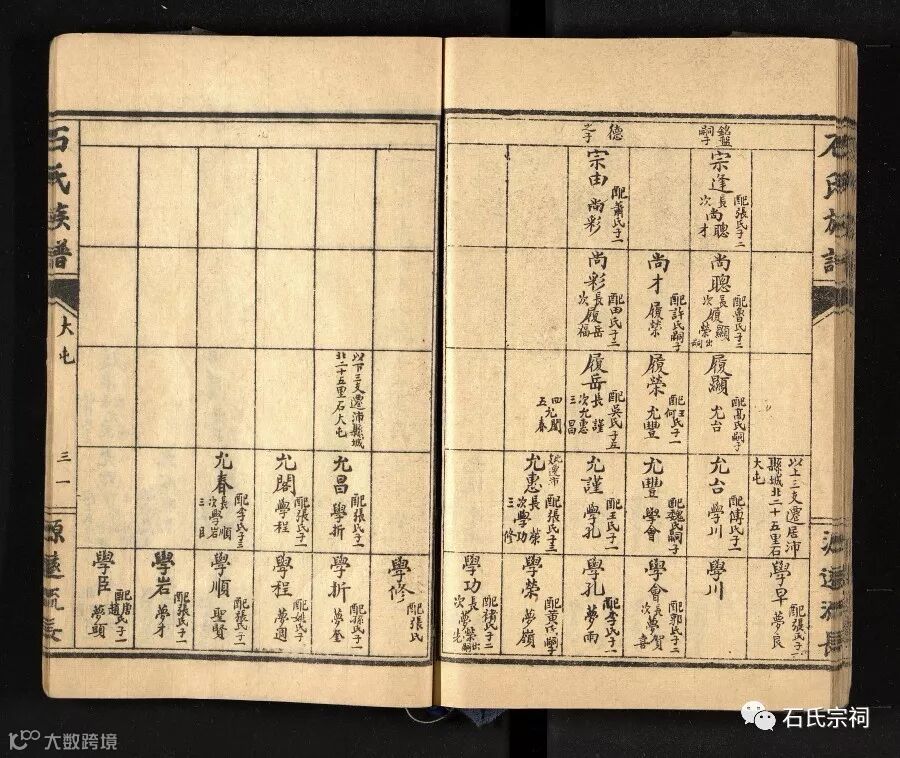 石氏族譜
源遠流長
銘盤嗣子
宗逢 配張氏子二 長尚聰 次尚才
德之子
宗由 配蕭氏子一 尚彩
尚聰 配曹氏子二 長履顯 次履榮出嗣
尚才 配許氏嗣子 履榮
尚彩 配田氏子二 長履岳 次履福
履顯 配高氏嗣子 允台
履榮 配王氏何氏子一 允豐
履岳 配吳氏子五 長允謹 次允惠 三允昌 四允閣 五允春
以上三支遷居沛縣城北二十五里石大屯
允台 配傅氏子一 學川
允豐 配魏氏嗣子 學會
允謹 配王氏子一 學孔
允惠 配張氏子三 長學榮 次學功 三學修
學早 配張氏子一 夢良
學川
學會 配郭氏子二 長夢賀 次夢喜
學孔 配李氏子一 夢雨
學榮 配黃氏嗣子 夢嶺
學功 配褚氏子二
以下三支遷沛縣城北二十五里石大屯
允昌 配張氏子一 學折
允閣 配張氏子一 學程
允春 配李氏子三 長學順 次學岩 三學臣
學修 配張氏
學折 配孫氏子一 夢奎
學程 配姚氏子一 夢週
學順 配張氏子一 聖賢
學岩 配張氏子一 夢才
學臣 配唐氏趙氏子一 夢頭
石氏族譜
大屯
三一
源遠流長
石氏宗祠
大数跨境